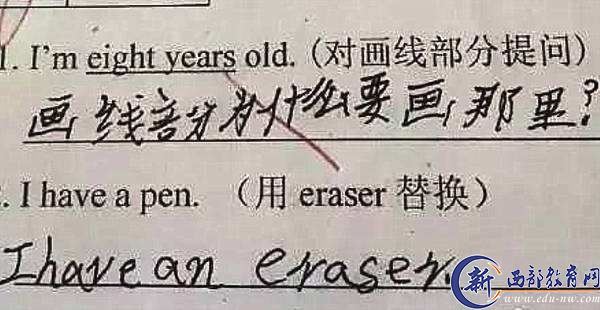 1. I'm eight years old. (对画线部分提问)
画线部分为什么要画那里?
. I have a pen. （用 eraser 替换）
I have an eraser.
新 西部教育网
www.edu-nw.com